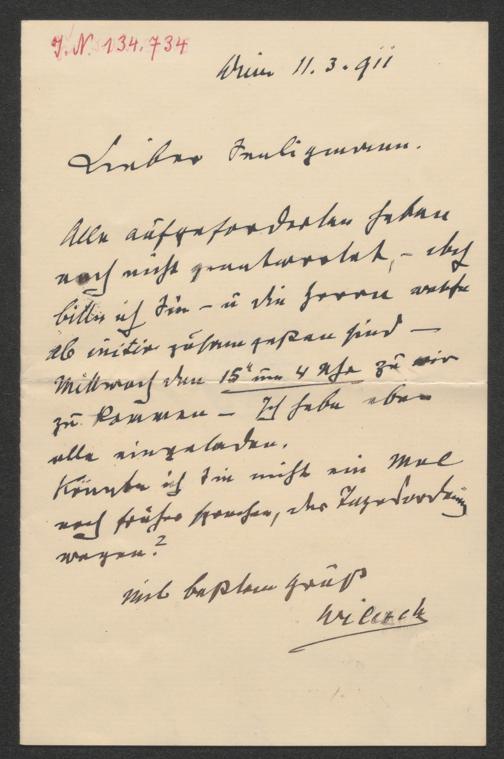 J.N. 134.734
Wien 11.3.911
Lieber Seeligmann.
Alle aufgeforderten haben
noch nicht geantwortet, – aber
bitte ich Sie – u die Herrn welche
ab initio zusamm geßen sind –
Mittwoch den 15ⁿ um 4 Uhr zu mir
zu kommen – Ich habe eben
alle eingeladen.
Könnte ich Sie nicht ein Mal
noch früher sprechen, der Tagesordnung
wegen?
Mit beßtem Gruß
Wilczek